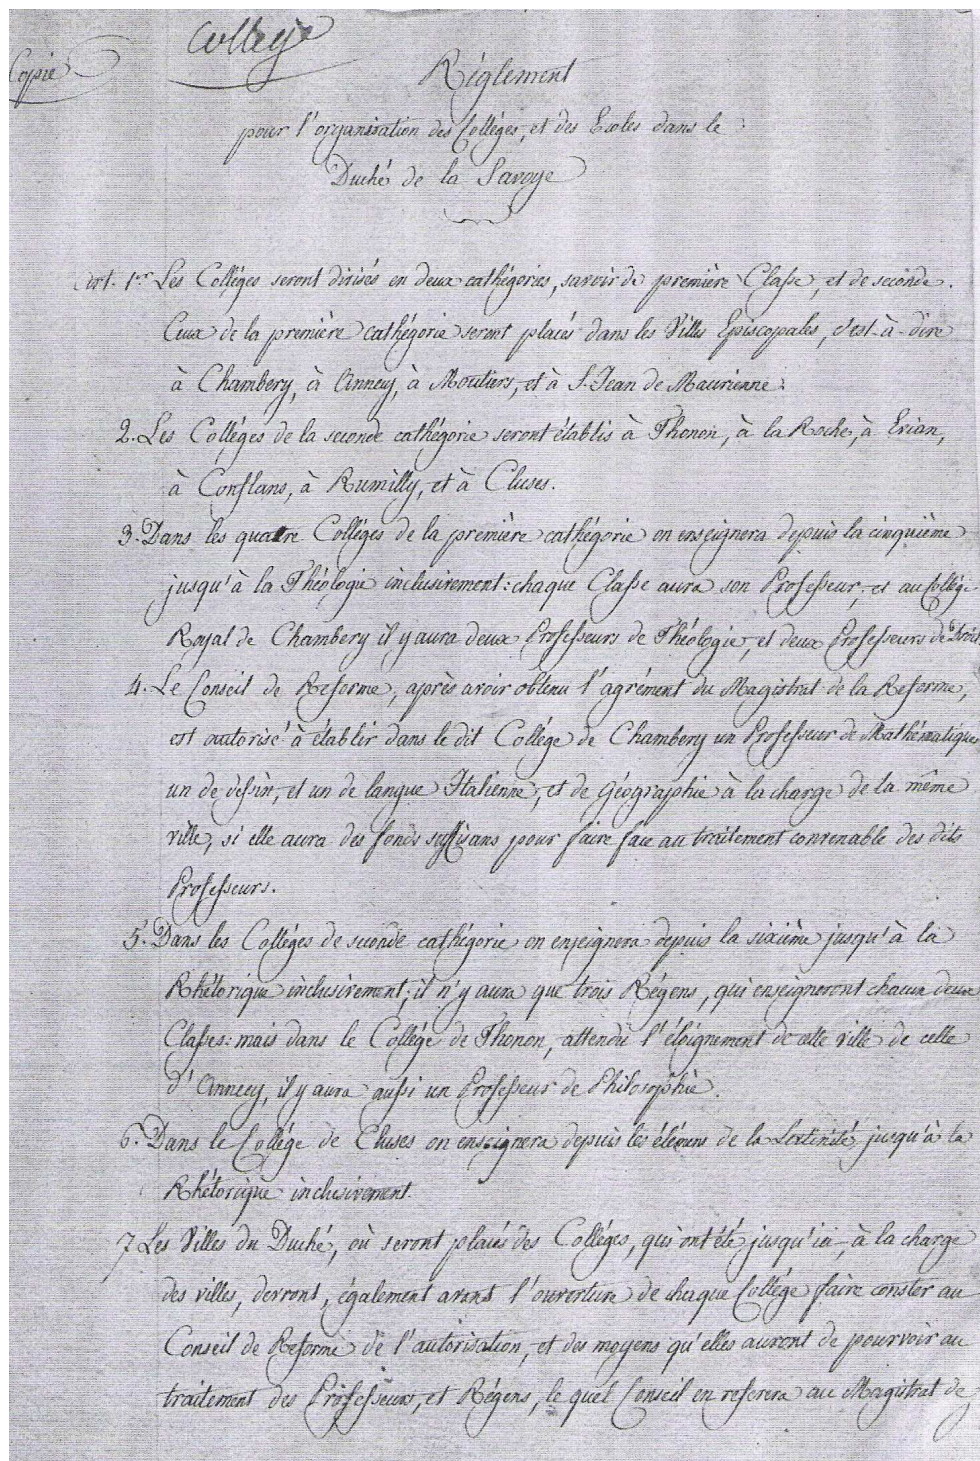 College
Copie
Réglement
pour l'organisation des Colléges, et des Ecoles dans le
Duché de la Savoye
Art. 1.er Les Colléges seront divisés en deux cathégories, savoir de première Classe, et de seconde.
Ceux de la première cathégorie seront placés dans les Villes Episcopales, c'est-à-dire
à Chambery, à Annecy, à Moutiers, et à S. Jean de Maurienne.
2. Les Colléges de la seconde cathégorie seront établis à Thonon, à la Roche, à Evian,
à Conflans, à Rumilly, et à Cluses.
3. Dans les quatre Colléges de la première cathégorie on enseignera depuis la cinquième
jusqu'à la Théologie inclusivement: chaque Classe aura son Professeur, et au Collége
Royal de Chambery il y aura deux Professeurs de Théologie, et deux Professeurs de Droit
4. Le Conseil de Reforme, après avoir obtenu l'agrément du Magistrat de la Reforme,
est autorisé à établir dans le dit Collége de Chambery un Professeur de Mathématique
un de dessin, et un de langue Italienne, et de géographie à la charge de la même
ville, si elle aura des fonds suffisans pour faire face au traitement convenable des dits
Professeurs.
5. Dans les Colléges de seconde cathégorie on enseignera depuis la sixième jusqu'à la
Rhétorique inclusivement; il n'y aura que trois Régens, qui enseigneront chacun deux
Classes: mais dans le Collége de Thonon, attendu l'éloignement de cette ville de celle
d'Annecy, il y aura aussi un Professeur de Philosophie.
6. Dans le Collége de Cluses on enseignera depuis les élémens de la Latinité jusqu'à la
Rhétorique inclusivement.
7. Les Villes du Duché, où seront placés des Colléges, qui ont été jusqu'ici, à la charge
des villes, devront, également avant l'ouverture de chaque Collége faire conster au
Conseil de Reforme de l'autorisation, et des moyens qu'elles auront de pourvoir au
traitement des Professeurs, et Régens, le quel Conseil en referera au Magistrat de